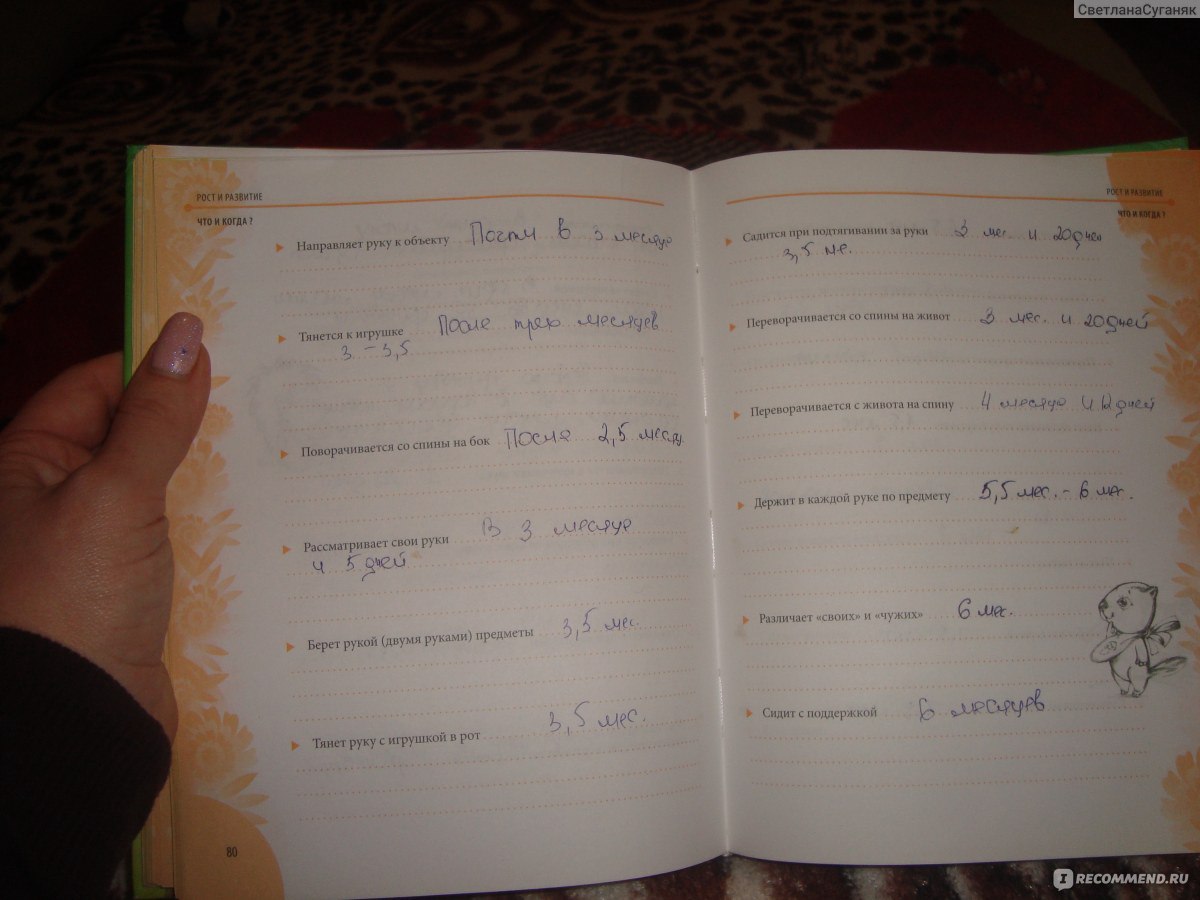 СветланаСуганяк
РОСТ И РАЗВИТИЕ
ЧТО И КОГДА ?
Направляет руку к объекту Почти в 3 месяца
Тянется к игрушке После трех месяцев
3 - 3,5
Поворачивается со спины на бок После 2,5 месяц.
Рассматривает свои руки В 3 месяца
и 5 дней
Берет рукой (двумя руками) предметы 3,5 мес.
Тянет руку с игрушкой в рот 3,5 мес.
80
РОСТ И РАЗВИТИЕ
ЧТО И КОГДА ?
Садится при подтягивании за руки 3 мес. и 20 дней
3,5 ме.
Переворачивается со спины на живот 3 мес. и 20 дней
Переворачивается с живота на спину 4 месяца и 12 дней
Держит в каждой руке по предмету 5,5 мес. - 6 мес.
Различает «своих» и «чужих» 6 мес.
Сидит с поддержкой 6 месяцев
IRECOMMEND.RU